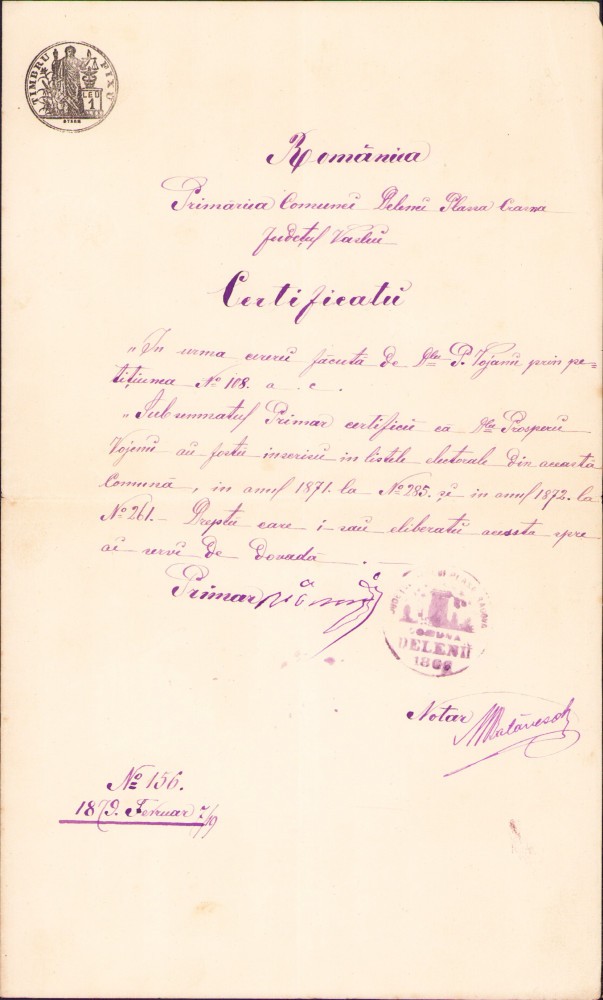 TIMBRU FIXU
LEO
1
România
Primăria Comunei Delenii Plasa Crasna
Județul Vaslui
Certificatu
„In urma cererei făcută de Dlu P. Vojanu prin pe-
tițiunea No 108. a. c.
„Subsemnatul Primar certificü că Dlu Prosperu
Vojenu au fostu inscrisu in listele electorale din această
Comună, in anul 1871. la No 285. și in anul 1872. la
No 261.- Dreptu care i sau eliberatu acesta spre
ai servi de dovadă
Primar
COMUNA
DELENII
1866
Notar
No 156.
1879. Februar 7/19